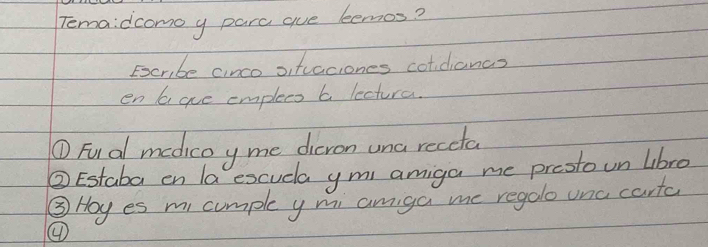 Tema: ¿como y para que leemos?
Escribe cinco situaciones cotidianas
en la que emplees la lectura.
① Fui al medico y me dieron una receta
② Estaba en la escuela y mi amiga me presto un libro
③ Hoy es mi cumple y mi amiga me regalo una carta
④